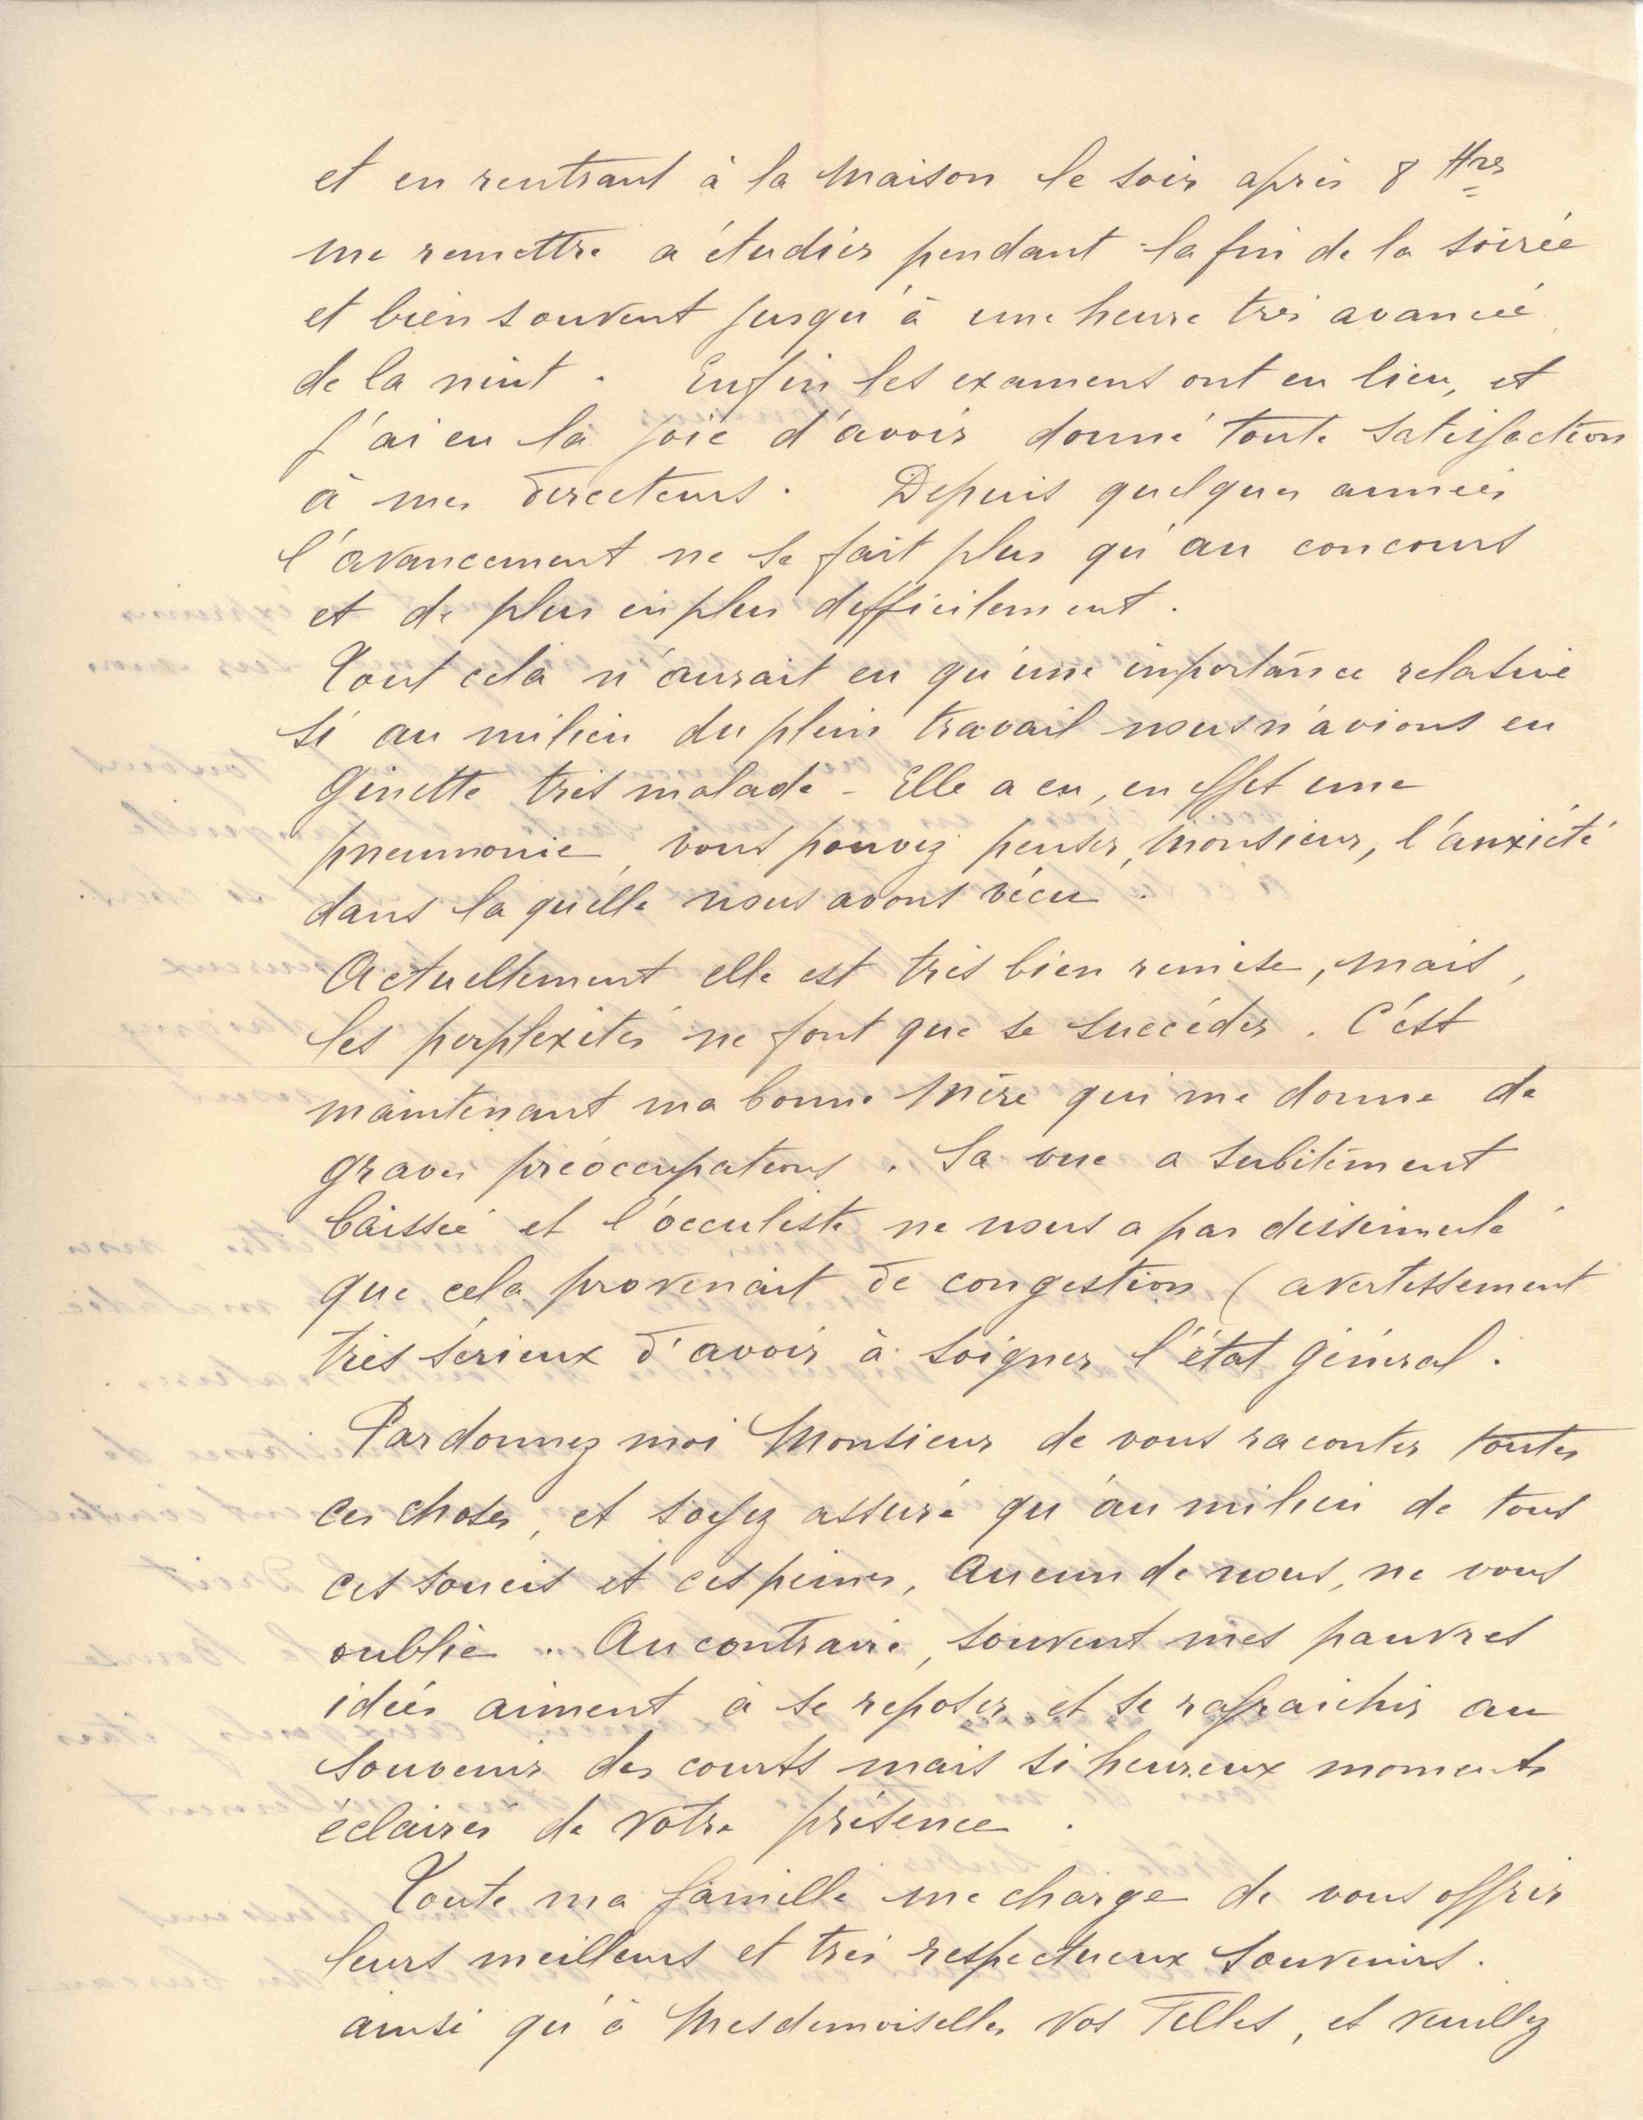 et en rentrant à la Maison le soir après 8 Hres
me remettre a étudier pendant la fin de la soirée
et bien souvent jusqu'à une heure très avancée
de la nuit. Enfin les examens ont eu lieu, et
j'ai eu la joie d'avoir donné toute satisfaction
à mes directeurs. Depuis quelques années
l'avancement ne se fait plus qu'au concours
et de plus en plus difficilement.
Tout cela n'aurait eu qu'une importance relative
si au milieu du plein travail nous n'avions eu
Ginette très malade - Elle a eu, en effet une
pneumonie, vous pouvez penser, Monsieur, l'anxiété
dans laquelle nous avons vécu.
Actuellement elle est très bien remise, mais,
les perplexités ne font que se succéder. C'est
maintenant ma bonne Mère qui me donne de
graves préoccupations. Sa vue a subitement
baissée et l'occuliste ne nous a pas dissimulé
que cela provenait de congestion (avertissement
très sérieux d'avoir à soigner l'état général.
Pardonnez moi Monsieur de vous raconter toutes
ces choses, et soyez assuré qu'au milieu de tous
ces soucis et ces peines, Aucun de nous, ne vous
oublie.. Au contraire, souvent mes pauvres
idées aiment à se reposer et se rafraichir au
souvenir des courts mais si heureux moments
éclairés de Votre présence.
Toute ma famille me charge de vous offrir
leurs meilleurs et très respectueux Souvenirs.
ainsi qu'à Mesdemoiselles Vos Filles, et veuillez